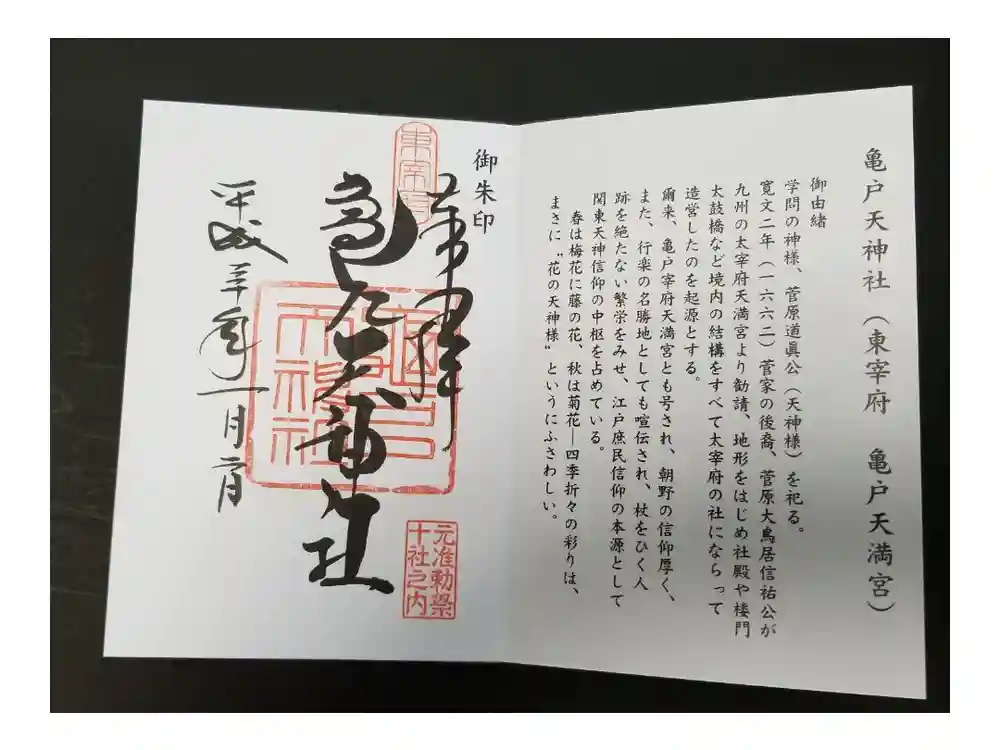 亀戸天神社（東宰府 亀戸天満宮）
御由緒
学問の神様、菅原道眞公（天神様）を祀る。
寛文二年（一六六二）菅家の後裔、菅原大鳥居信祐公が
九州の太宰府天満宮より勧請、地形をはじめ社殿や楼門
太鼓橋など境内の結構をすべて太宰府の社にならって
造営したのを起源とする。
爾来、亀戸宰府天満宮とも号され、朝野の信仰厚く、
また、行楽の名勝地としても喧伝され、杖をひく人
跡を絶たない繁栄をみせ、江戸庶民信仰の本源として
関東天神信仰の中枢を占めている。
春は梅花に藤の花、秋は菊花―四季折々の彩りは、
まさに〝花の天神様〟というにふさわしい。
御朱印
奉拝
東宰府
亀戸天神社
亀戸
天神社
元准勅祭
十社之内
平成三十年一月二日